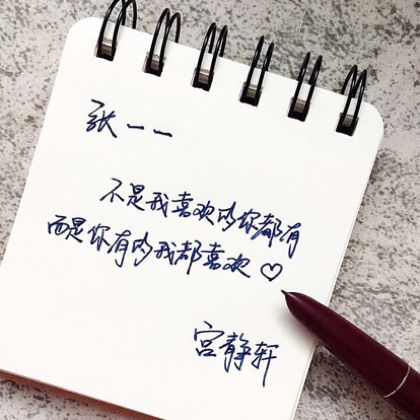 张一一
不是我喜欢的你都有
而是你有的我都喜欢♡
宫静轩